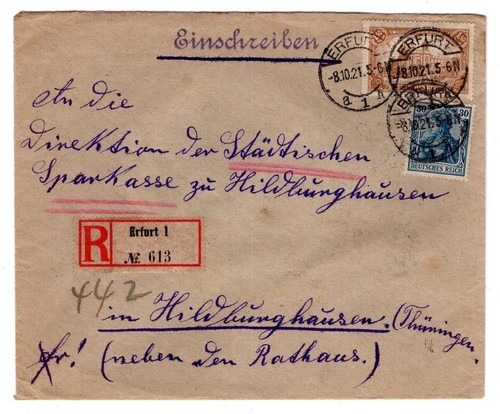 Einschreiben
ERFURT
-8.10.21.5-6N
a 1 h
ERFURT
-8.10.21.5-6N
-8.10.21.5-6N
30 30
DEUTSCHES REICH
An die
Direktion der Städtischen
Sparkasse zu Hildburghausen
R
Erfurt 1
№ 613
442
in Hildburghausen. (Thüringen.
fr! (neben den Rathaus.)